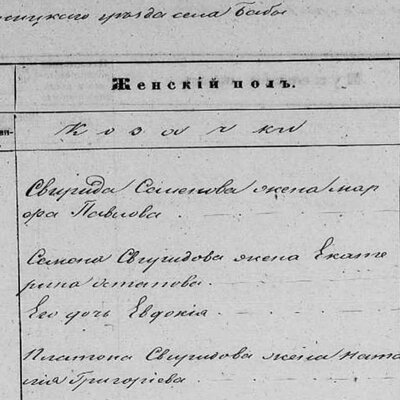 сницкого уезда села Бабы
Женскій полъ.
Козачки
Свирида Семенова жена мар
фра Павлова
Семена Свиридова жена Екате
рина остапова.
Его дочь Евдокія.
Платона Свиридова жена ната
лія Григоріева